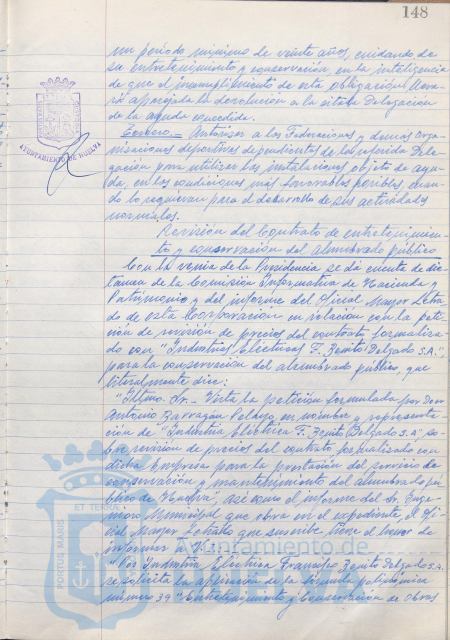 148
un período mínimo de veinte años, cuidando de
su entretenimiento y conservación, en la inteligencia
de que el incumplimiento de esta obligación lleva-
rá aparejada la devolución a la citada Delegación
de la ayuda concedida.
Tercero.- Autorizar a las Federaciones y demás Orga-
nizaciones deportivas dependientes de la referida Dele-
gación para utilizar las instalaciones objeto de ayu-
da, en las condiciones más favorables posibles, cuan-
do lo requieran para el desarrollo de sus actividades
normales.
Revisión del Contrato de entretenimien-
to y conservación del alumbrado público
Con la venia de la Presidencia se dá cuenta de dic-
tamen de la Comisión Informativa de Hacienda y
Patrimonio y del informe del Oficial Mayor Letra-
do de esta Corporación en relación con la peti-
ción de revisión de precios del contrato formaliza-
do con "Industrias Eléctricas F. Benito Delgado S.A.",
para la conservación del alumbrado público, que
literalmente dice:
"Iltmo. Sr.- Vista la petición formulada por Don
Antonio Barragán en nombre y representa-
ción de "Industria Eléctrica F. Benito Delgado S.A" so-
bre revisión de precios del contrato formalizado con
dicha Empresa para la prestación del servicio de
conservación y mantenimiento del alumbrado pú-
blico de Huelva", así como el informe del Sr. Inge-
niero Municipal que obra en el expediente, el Ofi-
cial Mayor Letrado que suscribe tiene el honor de
informar a
"Por Industria Eléctrica Francisco Benito Delgado S.A.
se solicita la aplicación de la fórmula polinómica
número 39 "Entretenimiento y Conservación de Obras
AYUNTAMIENTO DE HUELVA
Ayuntamiento de
PORTUS MARIS
ET TERRAE